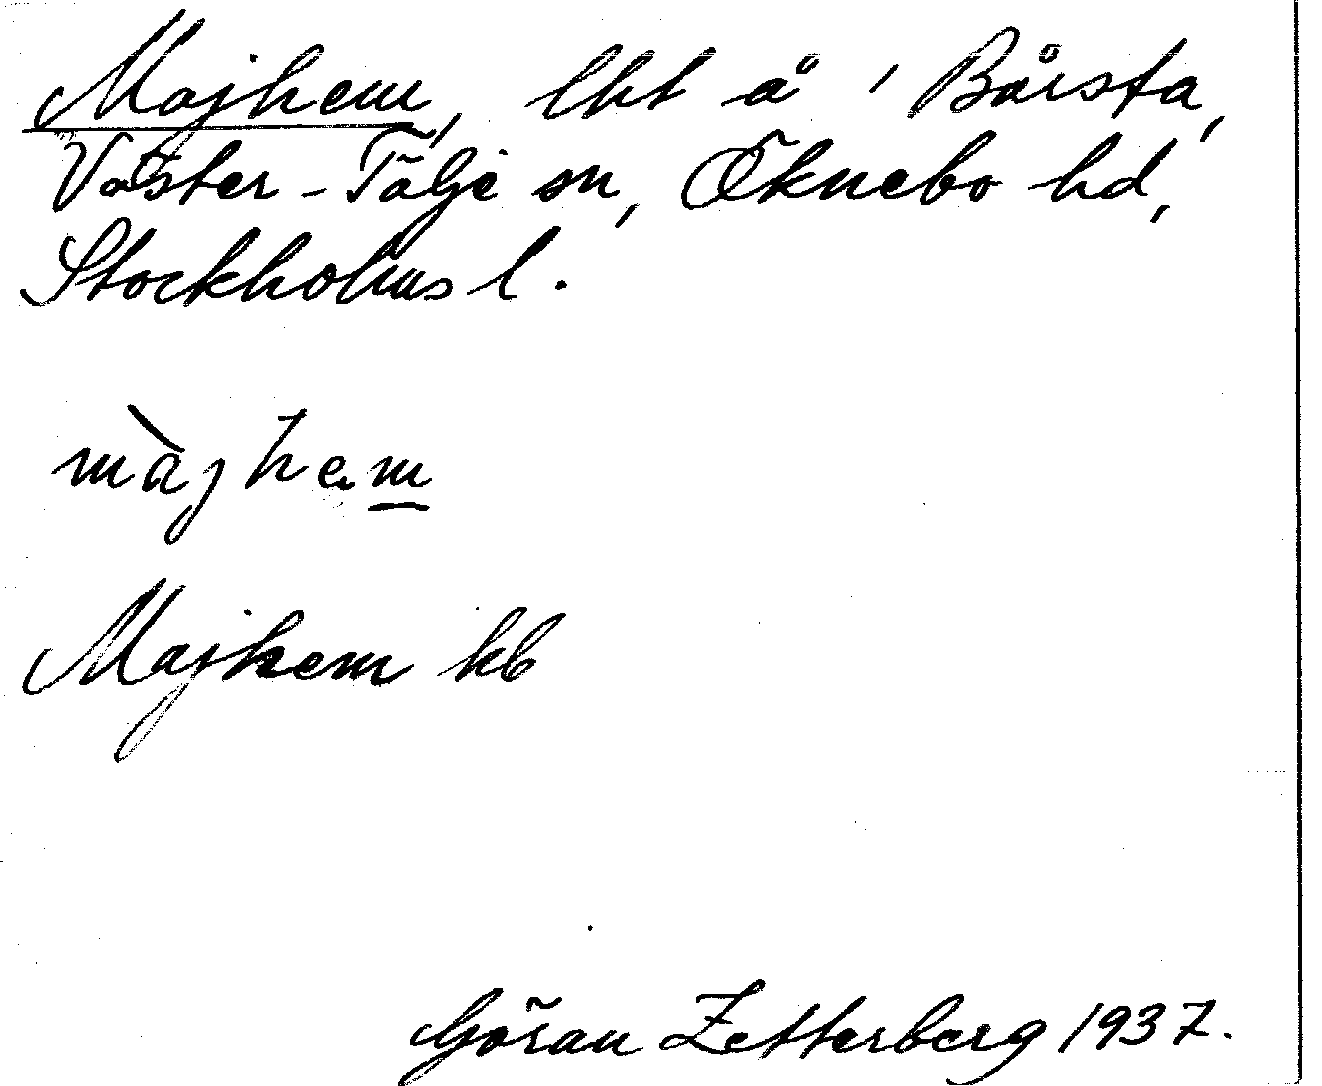 Majhem, lht å ' Bårsta,
Väster-Tälje sn, Öknebo hd,
Stockholms l.
màjhem
Majhem kb
Göran Zetterberg 1937.